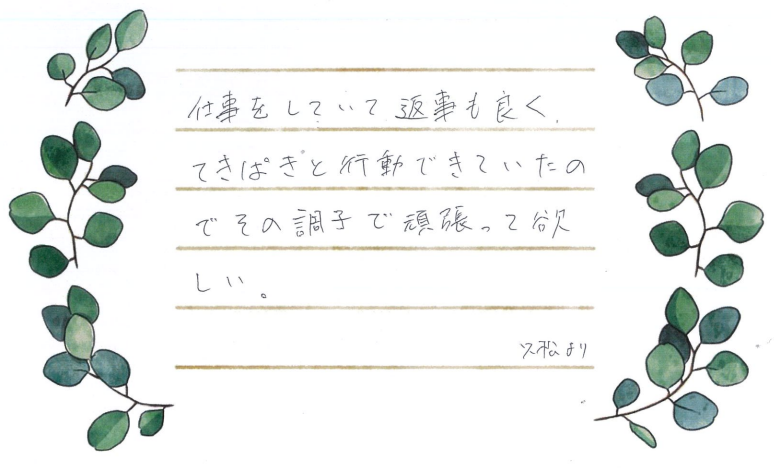 仕事をしていて返事も良く、
てきぱきと行動できていたの
でその調子で頑張って欲
しい。
久松より